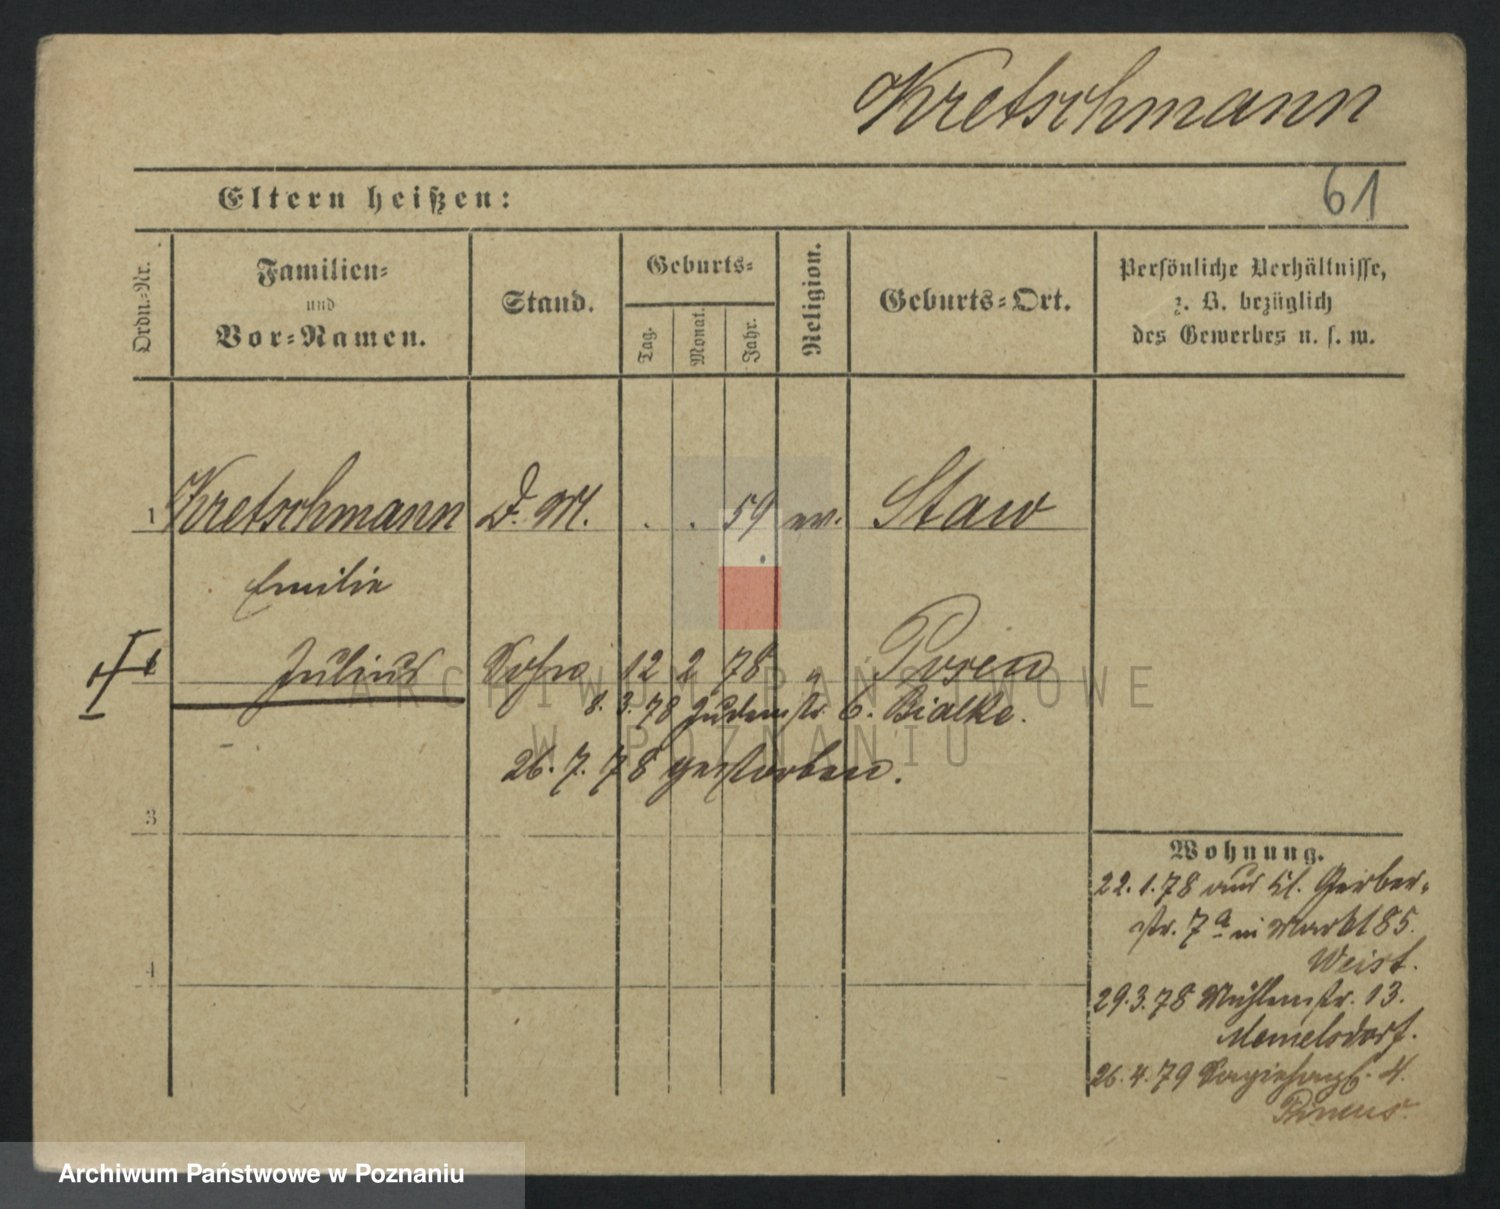 Kretschmann
61
Eltern heißen:
Ordn.-Nr.
Familien-
und
Vor-Namen.
Stand.
Geburts-
Tag.
Monat.
Jahr.
Religion.
Geburts-Ort.
Persönliche Verhältnisse,
z. B. bezüglich
des Gewerbes u. s. w.
1 Kretschmann D. M. . . 59 ev. Staw
Emilie
Julius Sohn 12 2 78 " Posen
8. 3. 78 Judenstr. 6. Bialke.
26. 7. 78 gestorben.
3
4
Wohnung.
22. 1. 78 aus Kl. Gerber-
str. 7a in Markt 85.
Weist.
29. 3. 78 Mühlenstr. 13.
Memelsdorf.
26. 4. 79 4.
ARCHIWUM PAŃSTWOWE
W POZNANIU
Archiwum Państwowe w Poznaniu